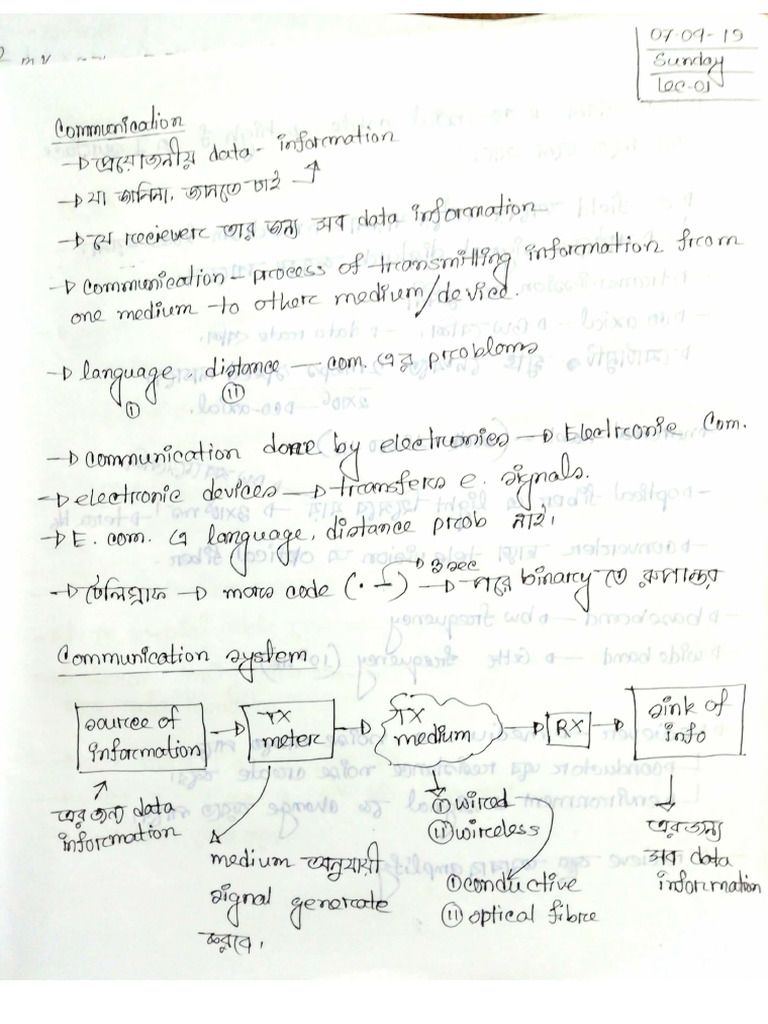 07-04-19
Sunday
Lec-01
Communication
→ প্রয়োজনীয় data - information
→ যা জানিনা, জানতে চাই
→ যে reciever তার জন্য সব data information
→ communication - process of transmitting information from
one medium to other medium/device.
→ language, distance - com. এর problems
i ii
→ communication done by electronics → Electronic Com.
→ electronic devices → transfers e. signals.
→ E. com. এ language, distance prob নাই।
3 sec
→ টেলিগ্রাফ → mors code (· –) → পরে binary তে রুপান্তর
Communication system
source of
information → TX
meter → TX
medium → RX → sink of
info
এর জন্য data
information
medium অনুযায়ী
signal generate
করবে।
i wired
ii wireless
i conductive
ii optical fibre
এর জন্য
সব data
information